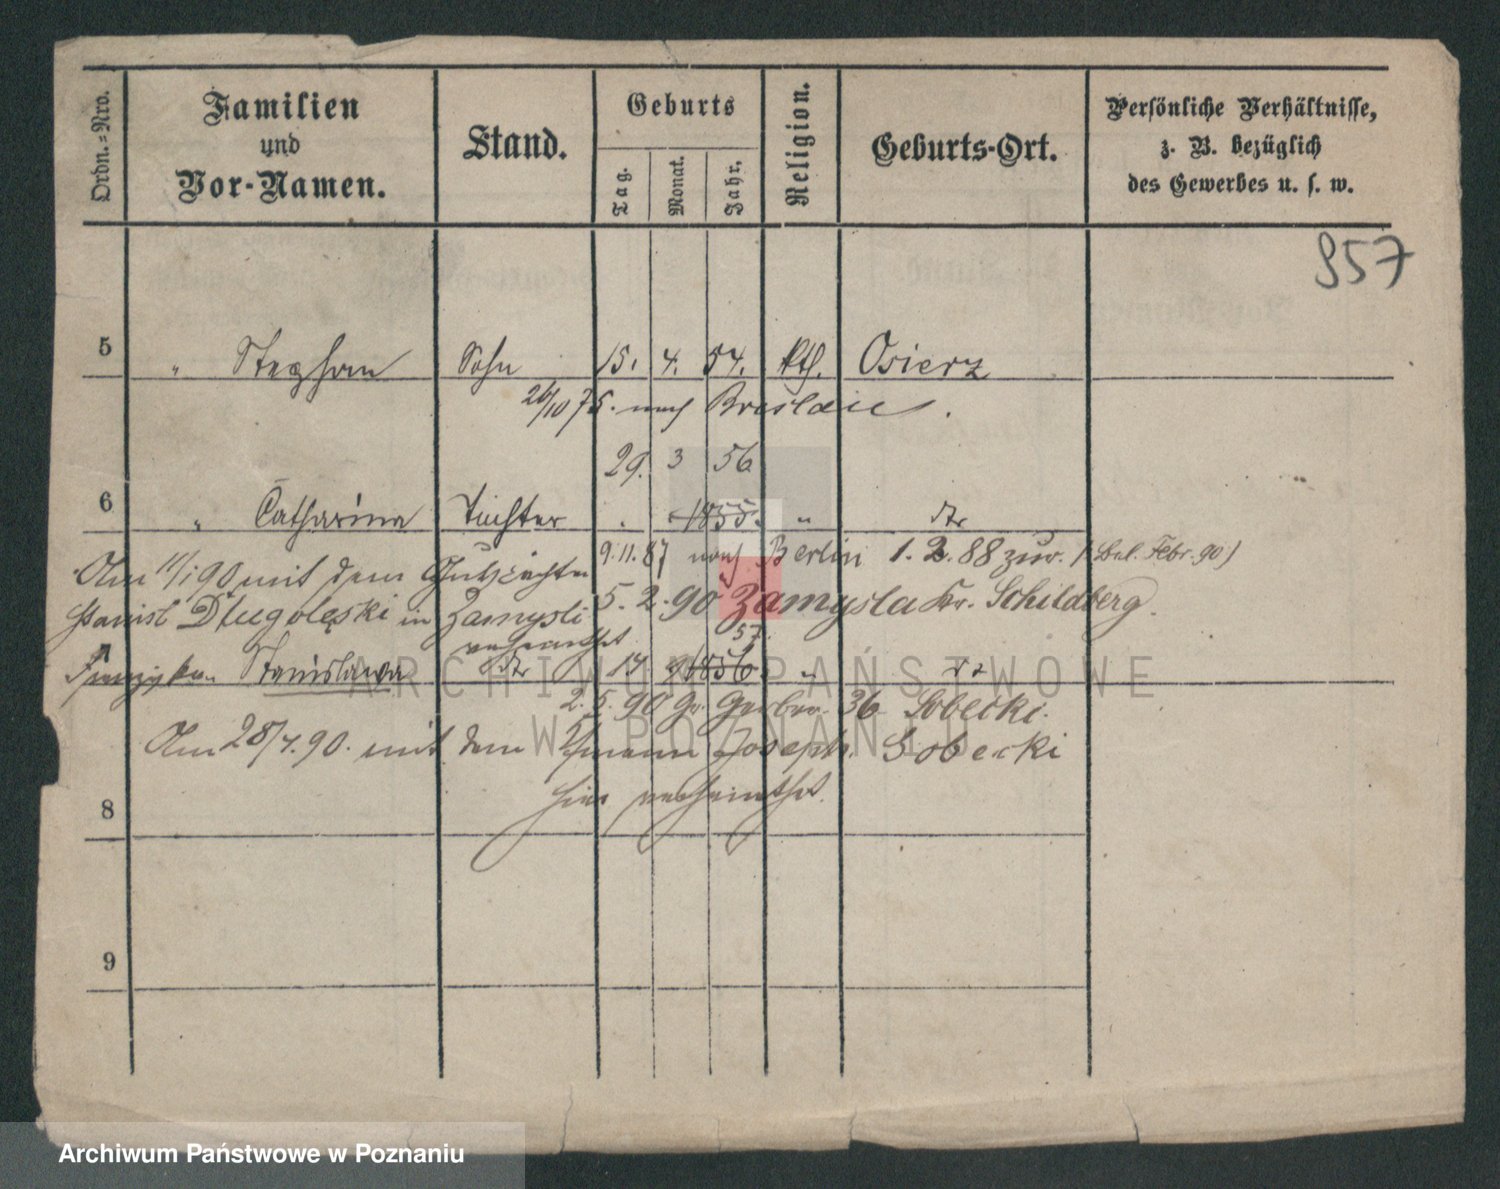 Ordn.-Nro.
Familien
und
Vor-Namen.
Stand.
Geburts
Tag.
Monat.
Jahr.
Religion.
Geburts-Ort.
Persönliche Verhältnisse,
z. B. bezüglich
des Gewerbes u. s. w.
957
5 " Stephan Sohn 15. 4. 54. kth. Osierz
26/10 75. nach Breslau.
29. 3 56
6 " Catharina Tochter . 1855. " dto
9.11.87 nach Berlin 1.2.88 zur. (Bel. Febr. 90)
Am 11/1 90 mit dem
5.2.90 Zamysla Kr. Schildberg.
Stanisl Długolęski in Zamysli
verheirathet
57.
7 Franziska Stanislawa dto 17 9 1856 " dto
2.5.90 Gr. Gerber. 36 Sobecki.
Am 28/4.90. mit dem Joseph Sobecki
hier verheirathet.
8
9
ARCHIWUM PAŃSTWOWE
W POZNANIU
Archiwum Państwowe w Poznaniu